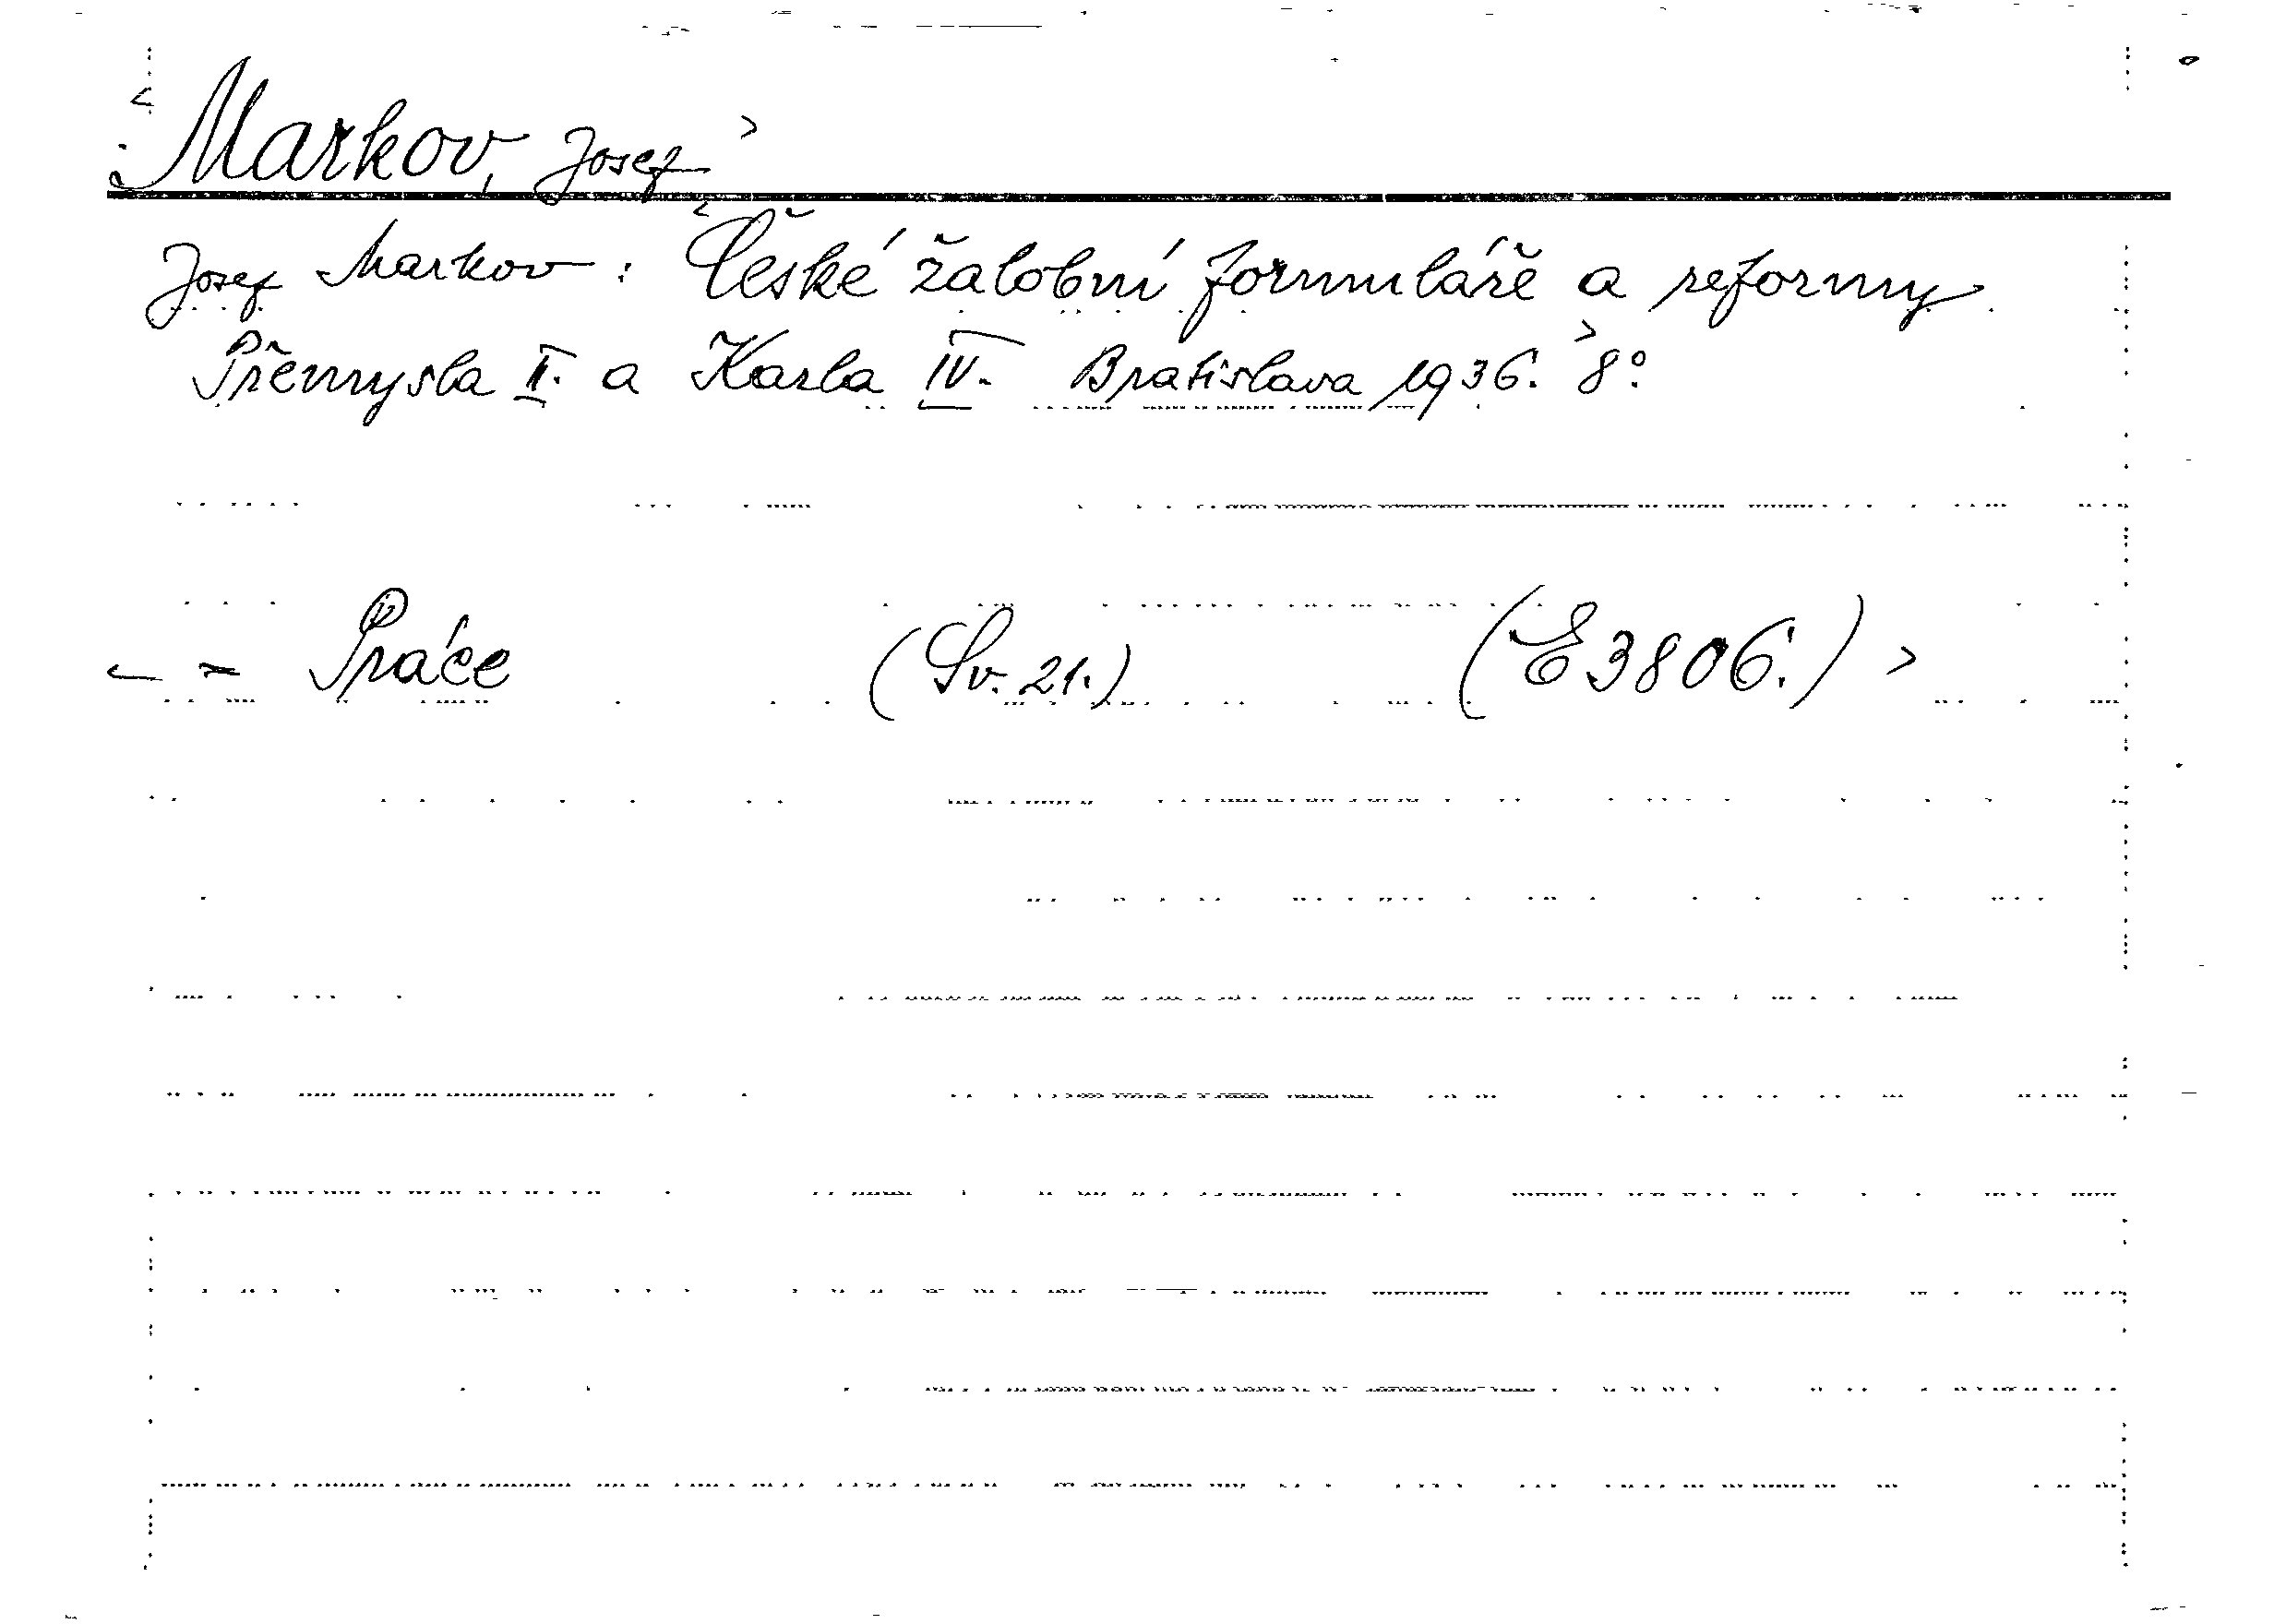 < Markov, Josef >
Josef Markov: < České žalobní formuláře a reformy
Přemysla II. a Karla IV. Bratislava 1936. > 8°.
< = Práce (Sv. 21.) (E3806.) >